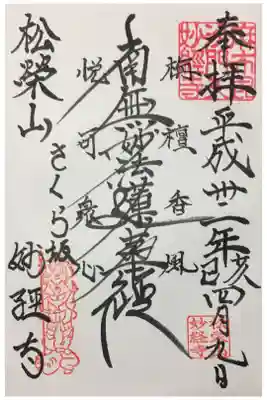 奉拝 平成卅一年 己亥 四月九日
栴檀香風
南無妙法蓮華経
悦可衆心
さくら坂
松榮山 妙經寺
妙経寺